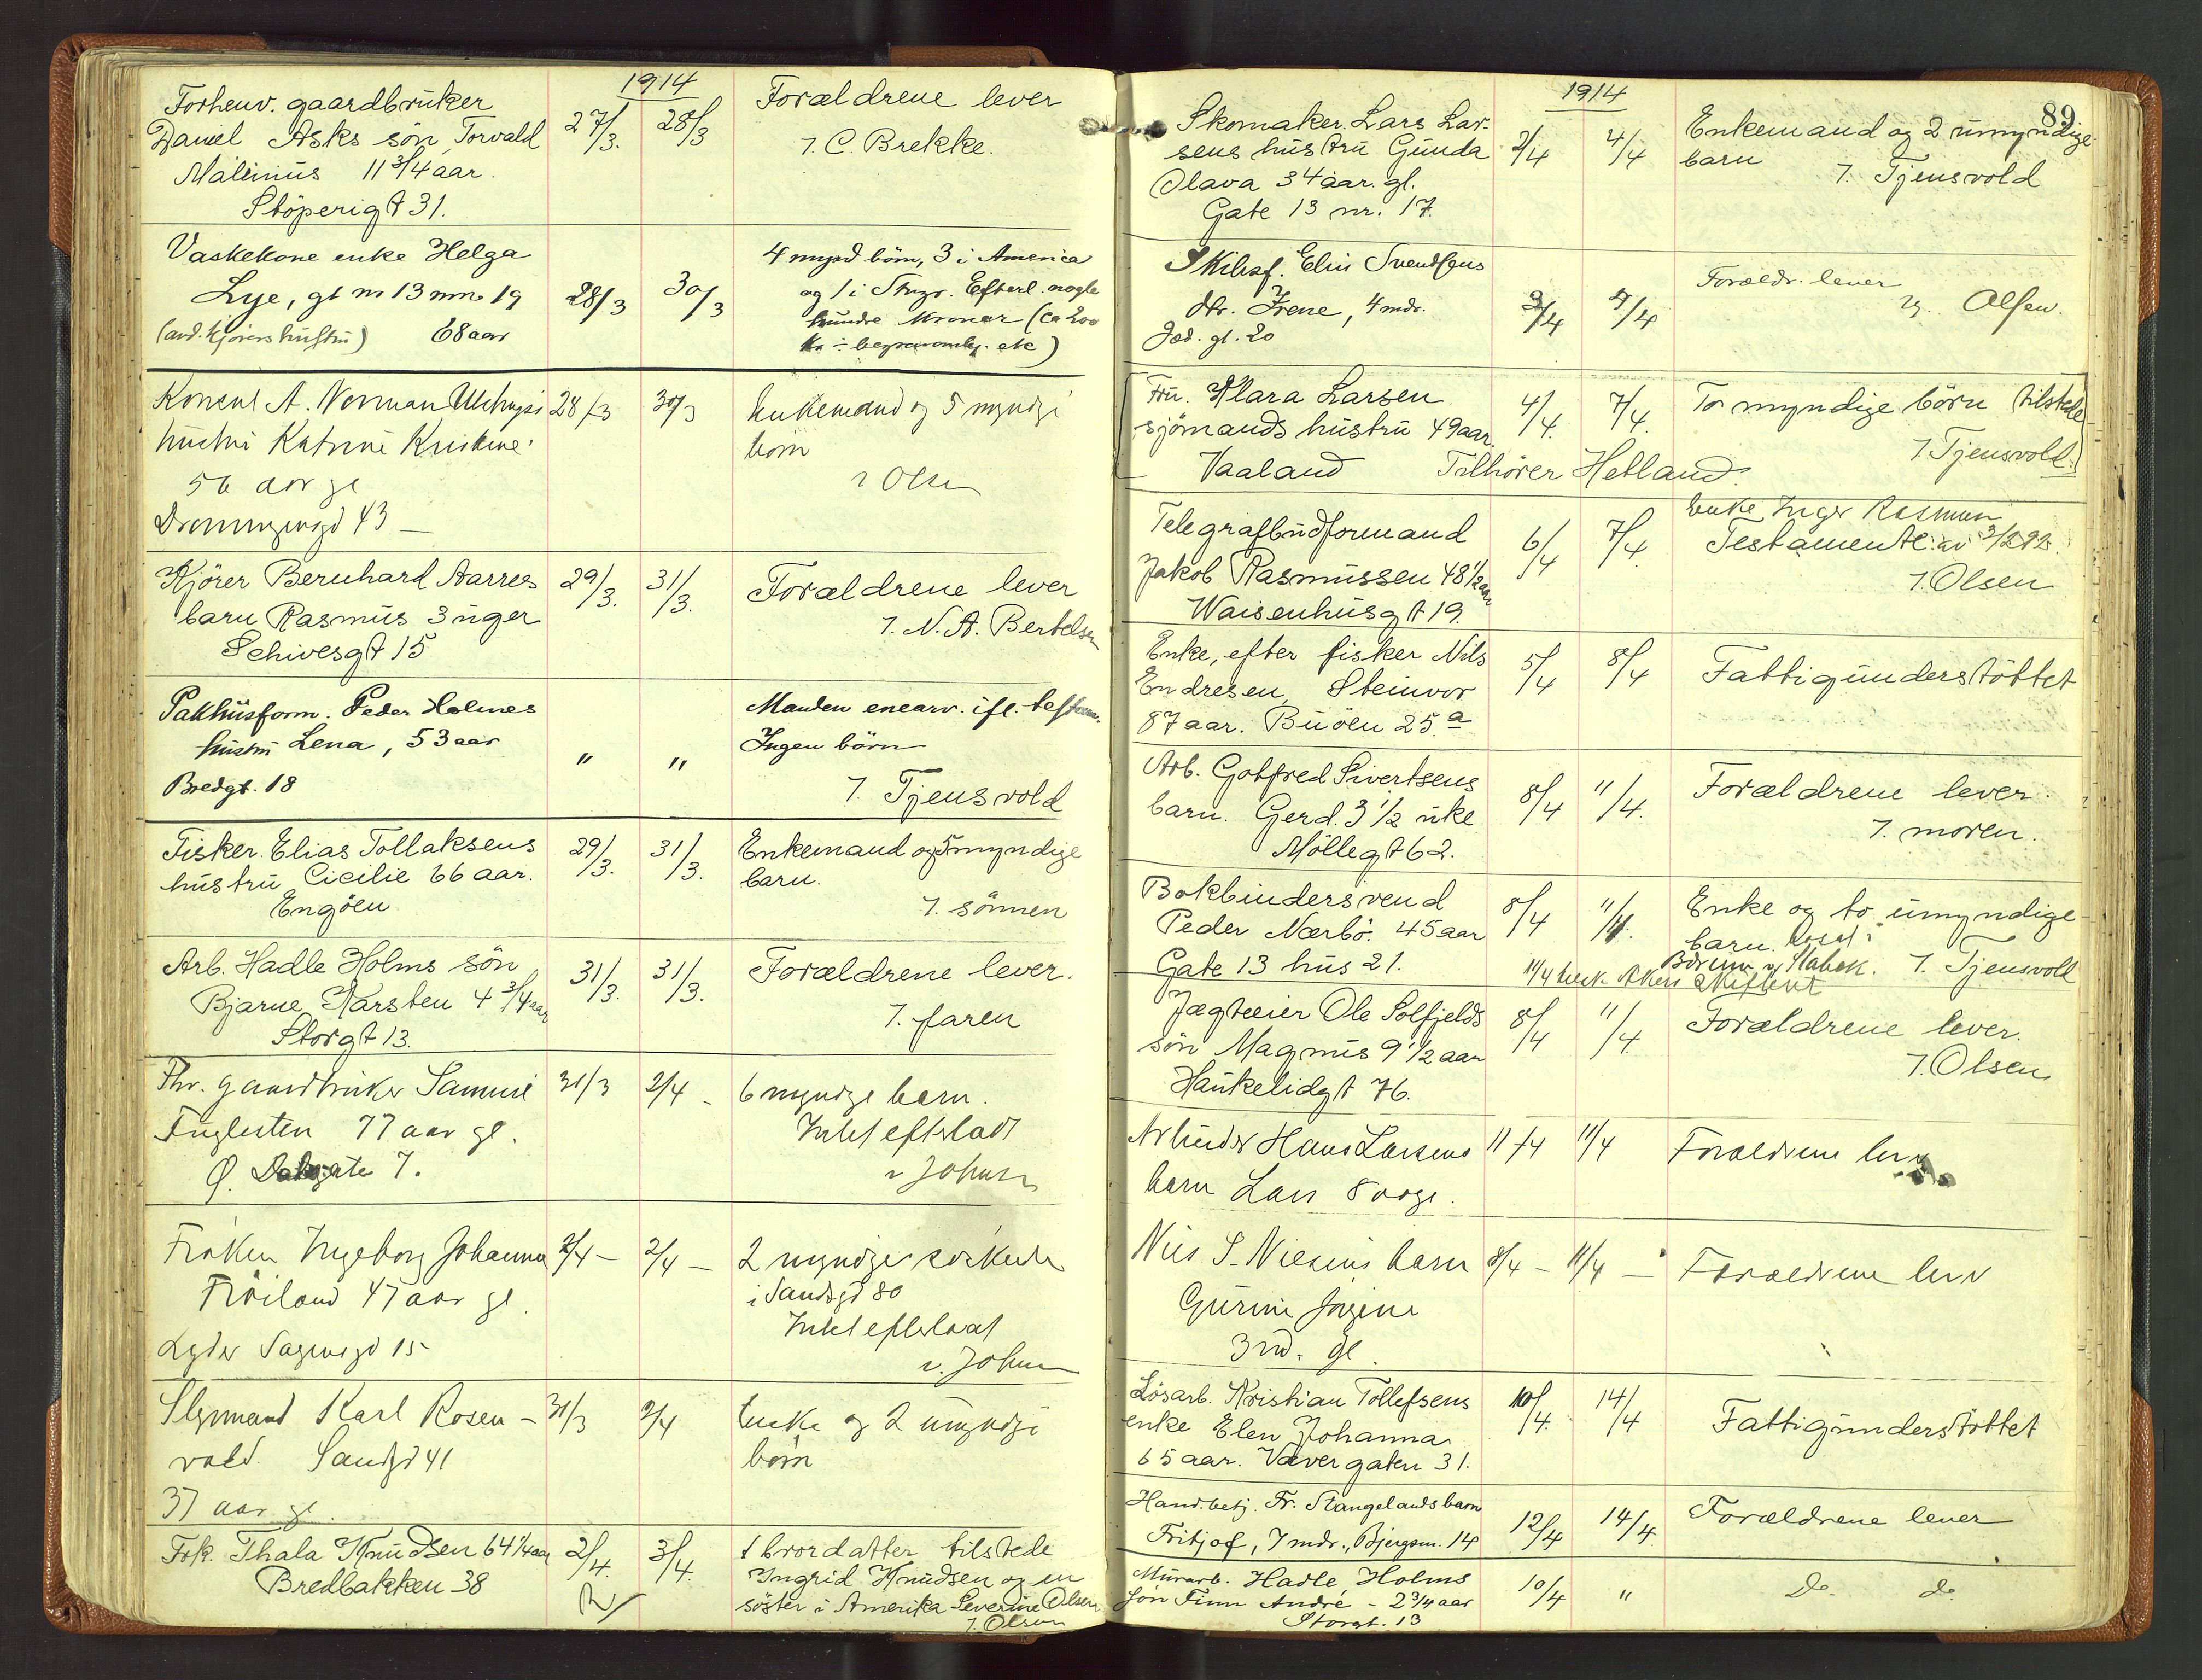 1914
Forhenv. gaardbruker
Daniel Asks sön Torvald
Malinius 11 3/4 aar.
Stöperigt 31.
27/3. 28/3
Forældrene lever
7. C. Brekke.
Vaskekone enke Helga
Lye, gt nr 13 nr 19
68 aar
28/3 30/3
4 mynd. börn, 3 i America
og 1 i Stvgr. Efterl. nogle
hundre Kroner (ca 200
Konsul A. Norman
hustru Katrine Kristine
56 aar gl
43
28/3 30/3
Enkemand og 5 myndige
börn
Olsen
Kjörer Bernhard Aarres
barn Rasmus 3 uger
Schivesgt 15
29/3. 31/3.
Forældrene lever
7. N. A. Bertelsen
Pakhusform. Peder Holmes
hustru Lena, 53 aar
Bredgt. 18
" "
Manden enearv. ifl. testam.
Ingen börn
7. Tjensvold
Fisker Elias Tollaksens
hustru Cicilie 66 aar.
Engöen
29/3. 31/3.
Enkemand og 5 myndige
barn.
7. sönnen
Arb. Hadle Holms sön
Bjarne Karsten 4 3/4 aar
Storgt 13.
31/3. 31/3.
Forældrene lever.
7. faren
Fhv. gaardbruker Samuel
Fuglesten 77 aar gl.
Ø. Dalegate 7.
31/3 2/4
6 myndige barn.
Intet efterladt
Fröken Ingeborg Johanna
Fröiland 47 aar gl
15
2/4 – 2/4 –
2 myndige söskende
i Sandsgt 80
Intet efterladt
Styrmand Karl Rosen-
vold. Sandgt 41
37 aar gl.
31/3 2/4
Enke og 2 umyndige
börn
Frk. Thala Knudsen 64 1/4 aar
Bredbakken 38
2/4. 3/4.
1 brordatter tilstede
Ingrid Knudsen og en
söster i Amerika Severine Olsen
7. Olsen
89
1914
Skomaker Lars Lar-
sens hustru Gunda
Olava 34 aar. gl.
Gate 13 nr. 17.
2/4 4/4
Enkemand og 2 umyndige
barn
7. Tjensvold
Skibsf. Elius Svendsens
dtr. Irene, 4 mdr.
Jæd. gt. 20
3/4 7/4
Forældr. lever
Olsen.
Fru. Klara Larsen
sjömands hustru 49 aar.
Vaaland Tilhörer Hetland.
4/4. 7/4.
To myndige börn tilstede
7. Tjensvold.
Telegrafbudformand
Jakob Rasmussen 48 1/2 aar
Waisenhusgt 19.
6/4 7/4
Enke Inger Rasmussen
Testamente av
7. Olsen
Enke, efter fisker Nils
Endresen, Steinvor
87 aar. Buöen 25.a
5/4 8/4
Fattigunderstöttet
Arb. Gotfred Sivertsens
barn. Gerd. 3 1/2 uke
Möllegt 62.
8/4 11/4.
Forældrene lever.
7. moren.
Bokbindersvend
Peder Nærbö. 45 aar
Gate 13 hus 21.
8/4 11/4.
Enke og to umyndige
barn.
7. Tjensvold
Jægteeier Ole Solfjelds
sön Magnus 9 1/2 aar
Haukelidgt 76.
8/4 11/4
Forældrene lever.
7. Olsen
Arbeider Hans Larsens
barn Lars
11/4 11/4
Forældrene lever
Nils S. Nielsens barn
Gurine Jorgine
3 md. gl.
8/4 – 11/4 –
Forældrene lever
Lösarb. Kristian Tollefsens
enke Elen Johanna
65 aar. Vævergaten 31.
10/4. 14/4
Fattigunderstöttet
Hand.betj. Fr. Stangelands barn
Fritjof, 7 mdr., Bjergsm. 14
12/4 14/4.
Forældrene lever
Murarb. Hadle Holms
sön Finn André – 2 3/4 aar
Storgt. 13
10/4 "
Do. do.